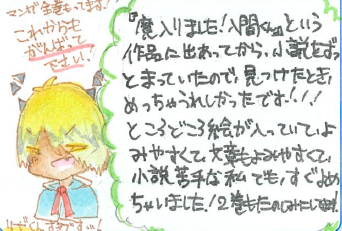 マンガ全巻もってます!
これからも
がんばって
下さい!
『魔入りました!入間くん』という
作品に出あってから、小説をずっ
とまっていたので、見つけたとき
めっちゃうれしかったです!!!
ところどころ絵が入っていて、よ
みやすくて、文章もよみやすくて、
小説苦手な私でも、すぐよめ
ちゃいました!2巻もたのしみにして